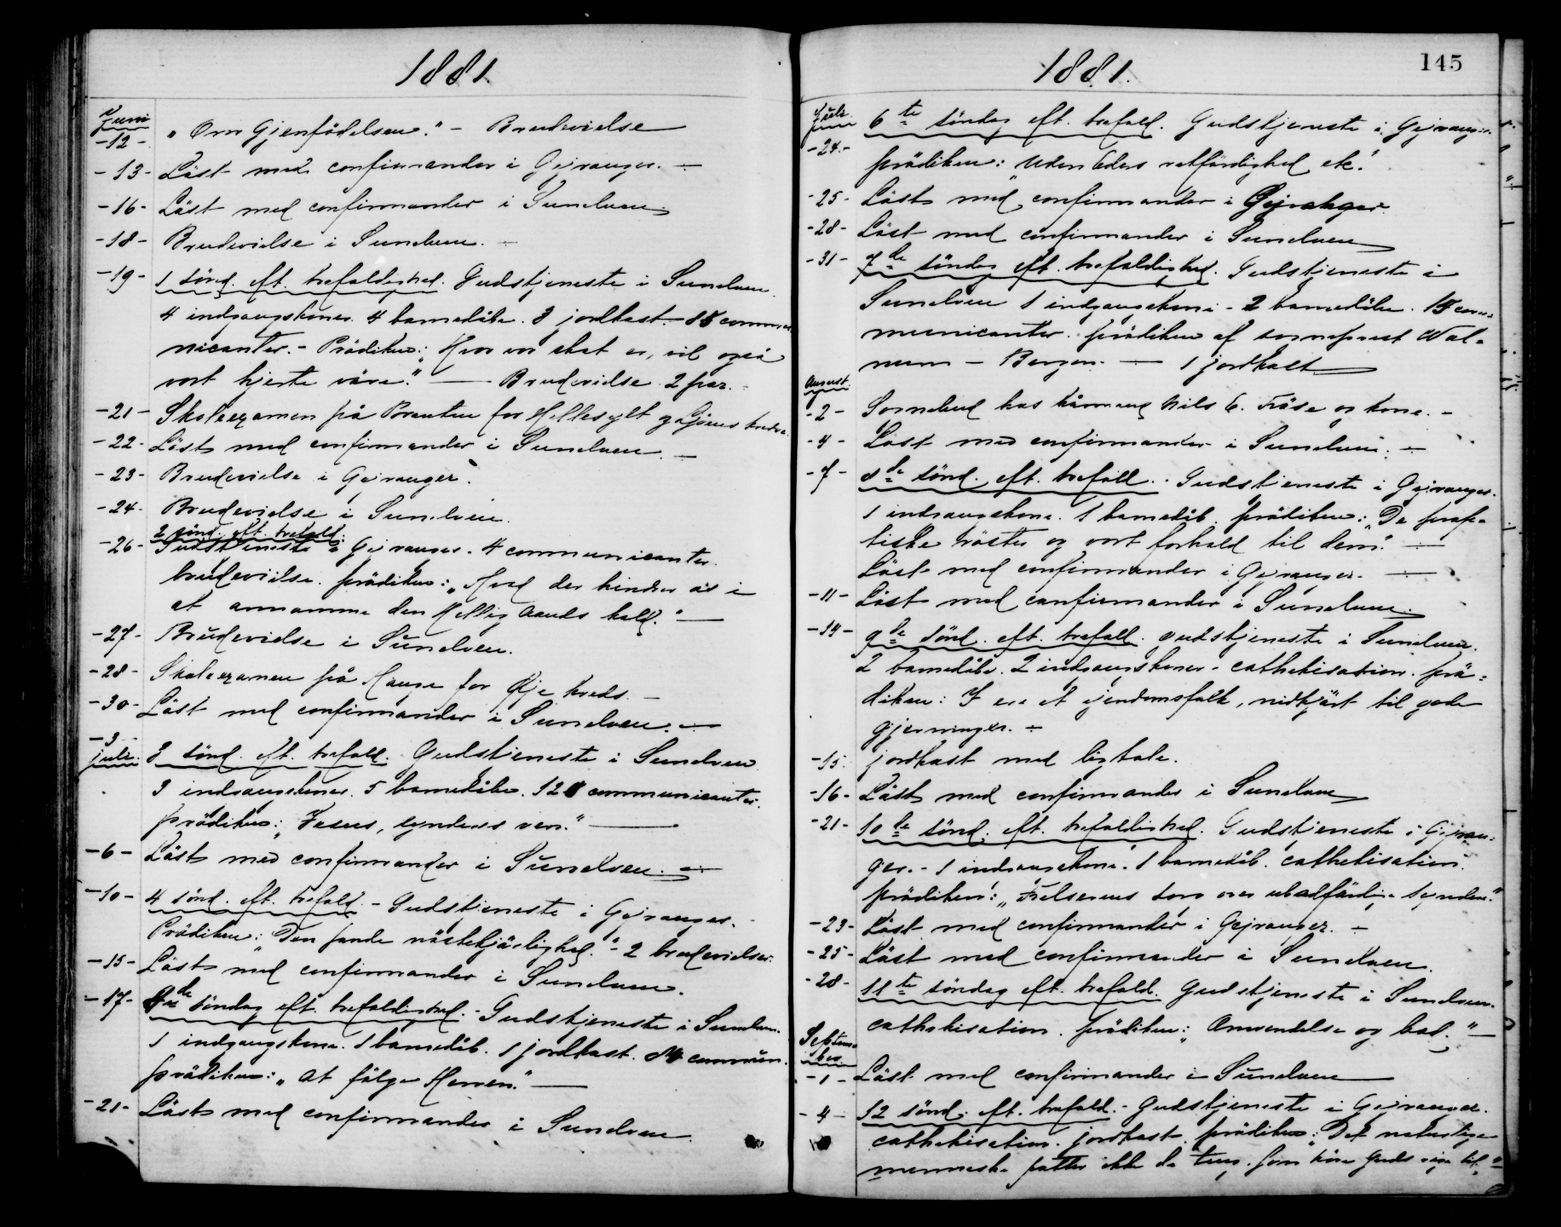 1881.
Juni
-12- „Om Gjenfödelsen." - Brudevielse
-13- Läst med confirmander i Gejranger. -
-16- Läst med confirmander i Sunelven.
-18- Brudevielse i Sunelven. -
-19- 1 sönd. eft. trefoldighed. Gudstjeneste i Sunelven.
4 indgangskoner. 4 barnedåbe. 3 jordkast. - 88 commu-
nicanter. - Prädiken: „Hvor vor skat er, vil også
vort hjerte väre." — Brudevielse 2 par. -
-21- Skoleexamen på Brautene for Hellesylt og Ljöens kredse.
-22- Läst med confirmander i Sunelven. -
-23- Brudevielse i Gejranger.
-24- Brudevielse i Sunelven.
2 sönd. eft. trefold.
-26- Gudstjeneste i Gejranger. 4 communicanter.
brudevielse. prädiken: „Hvad der hindrer os i
at annamme den Hellig Aands kald." —
-27- Brudevielse i Sunelven.
-28- Skoleexamen på Hauge for Øje kreds. -
-30- Läst med confirmander i Sunelven. -
-3-
juli. 3 sönd. eft. trefold. Gudstjeneste i Sunelven
3 indgangskoner. 5 barnedåbe. 128 communicanter.
prädiken: „Jesus, synderes ven." —
-6- Läst med confirmander i Sunelven. -
-10- 4 sönd. eft. trefold. - Gudstjeneste i Gejranger. -
Prädiken: „Den sande nästekjärlighed." - 2 brudevielser.
-15- Läst med confirmander i Sunelven.
-17- 5te söndag eft. trefoldighed. - Gudstjeneste i Sunelven.
1 indgangskone. 1 barnedåb. 1 jordkast. 84 commun.
prädiken: „At fölge Herren." —
-21- Läst med confirmander i Sunelven.
1881.
145
Juli 6te söndag eft. trefold. Gudstjeneste i Gejranger.
-24- prädiken: „Uden Eders retfärdighed etc."
-25- Läst med confirmander i Gejranger.
-28- Läst med confirmander i Sunelven
-31- 7de söndag eft. trefoldighed. Gudstjeneste i
Sunelven 1 indgangskone - 2 barnedåbe. 15 com-
municanter. prädiken af sognepræst Wal-
num - Bergen. — 1 jordkast
August
-2- Sognebud hos kårmand Nils E. Fröse og kone. -
-4- Läst med confirmander i Sunelven. -
-7- 8de sönd. eft. trefold. Gudstjeneste i Gejranger.
1 indgangskone. 1 barnedåb. prädiken: „De profe-
tiske röster og vort forhold til dem." —
Läst med confirmander i Gejranger. —
-11- Läst med confirmander i Sunelven.
-14- 9de sönd. eft. trefold. gudstjeneste i Sunelven.
2 barnedåbe. 2 indgangskoner - cathekisation. prä-
diken: I ere et ejendomsfolk, nidkjärt til gode
gjerninger. -
-15. jordkast med ligtale.
-16- Läst med confirmander i Sunelven
-21- 10de sönd. eft. trefoldighed. Gudstjeneste i Gejran-
ger. - 1 indgangskone. 1 barnedåb. cathekisation.
prädiken: „Frelserens sorg over ubodfärdige syndere."
-23- Läst med confirmander i Gejranger. -
-25- Läst med confirmander i Sunelven.
-28- 11te söndag eft. trefold. Gudstjeneste i Sunelven.
cathekisation. prädiken: „Omvendelse og bod." —
Septem-
ber
-1- Läst med confirmander i Sunelven
-4- 12 sönd. eft. trefold. - Gudstjeneste i Gejranger.
cathekisation. jordkast. prädiken: „Det naturlige
menneske fatter ikke de ting, som höre Guds rige til."